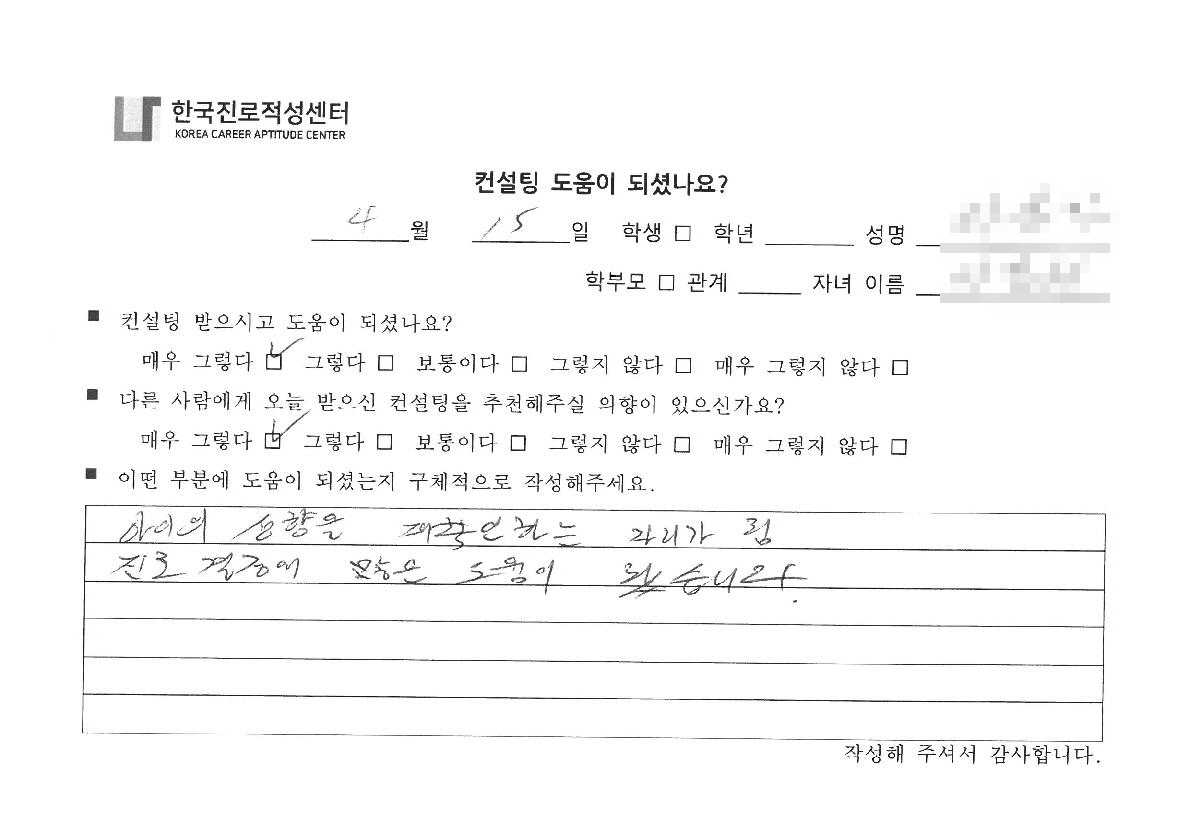 한국진로적성센터
KOREA CAREER APTITUDE CENTER
컨설팅 도움이 되셨나요?
4월 15일 학생 □ 학년 성명
학부모 □ 관계 자녀 이름
■ 컨설팅 받으시고 도움이 되셨나요?
매우 그렇다 ☑ 그렇다 □ 보통이다 □ 그렇지 않다 □ 매우 그렇지 않다 □
■ 다른 사람에게 오늘 받으신 컨설팅을 추천해주실 의향이 있으신가요?
매우 그렇다 ☑ 그렇다 □ 보통이다 □ 그렇지 않다 □ 매우 그렇지 않다 □
■ 어떤 부분에 도움이 되셨는지 구체적으로 작성해주세요.
아이의 성향을 재확인하는 자리가 됨
진로 결정에 많은 도움이 됐습니다.
작성해 주셔서 감사합니다.